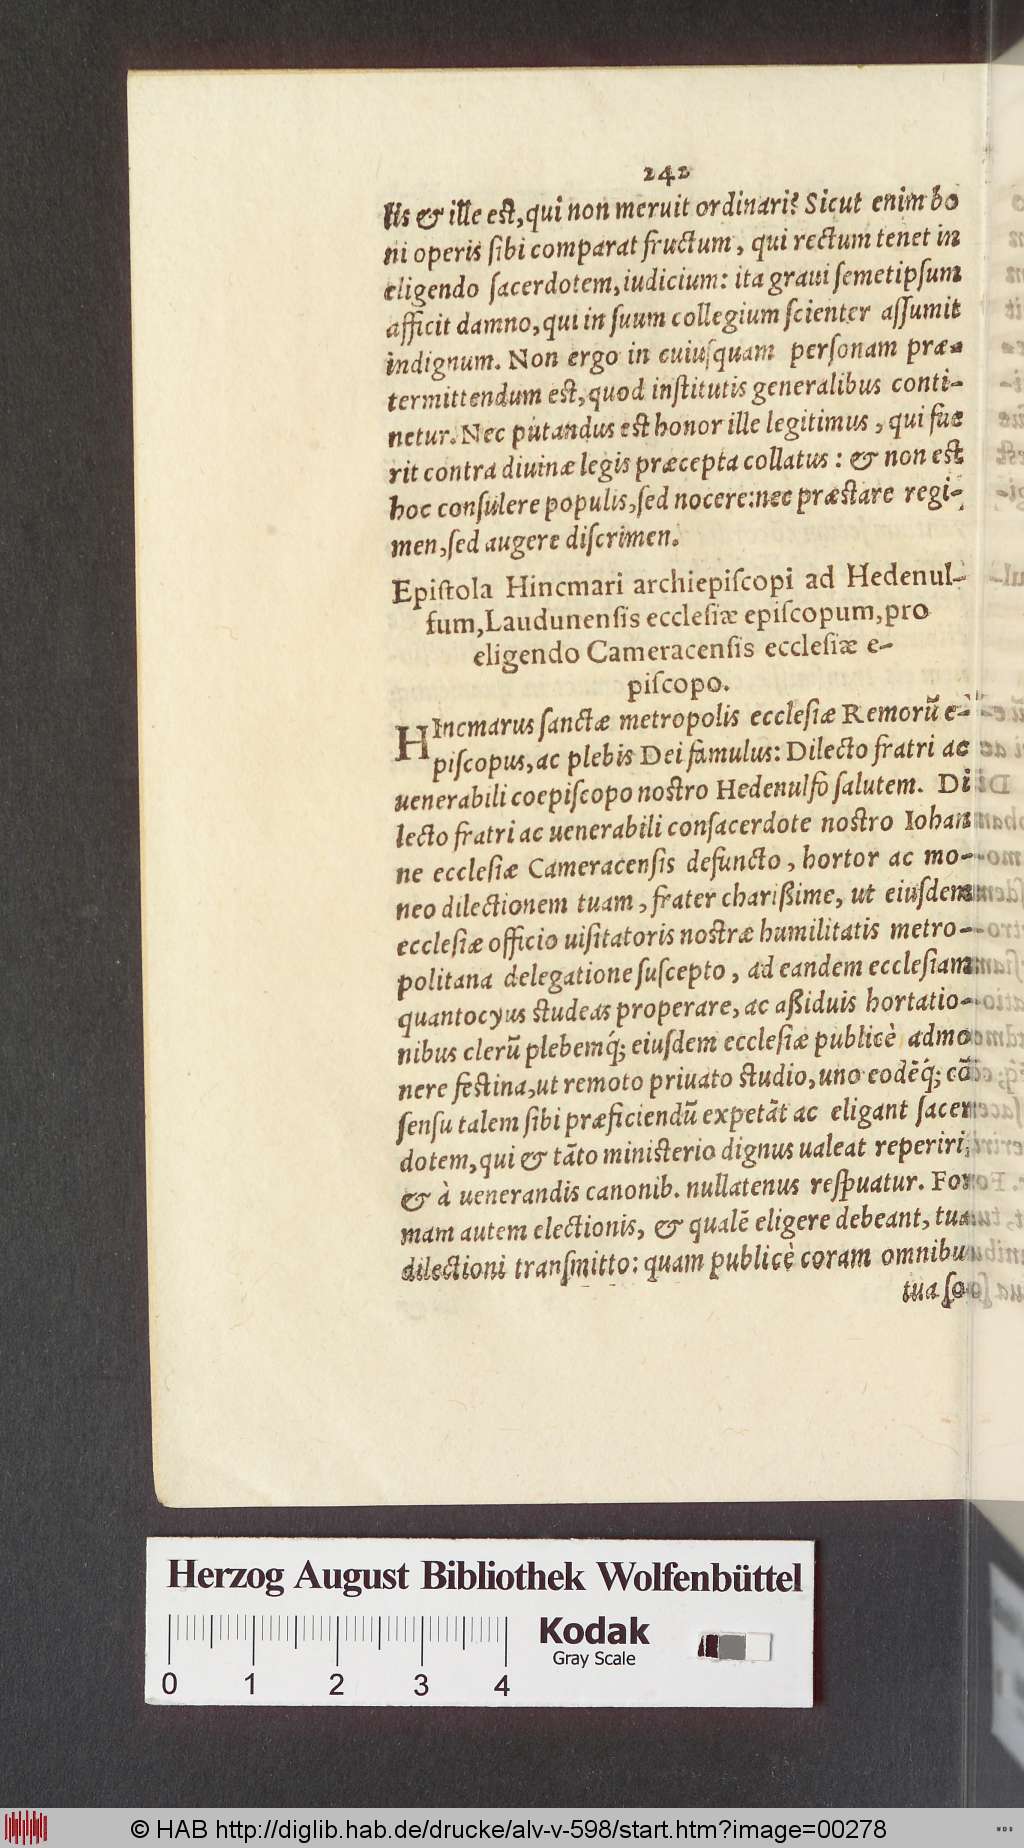 242
lis & ille est, qui non meruit ordinari? Sicut enim bo
ni operis sibi comparat fructum, qui rectum tenet in
eligendo sacerdotem, iudicium: ita graui semetipsum
afficit damno, qui in suum collegium scienter assumit
indignum. Non ergo in cuiusquam personam præ-
termittendum est, quod institutis generalibus conti-
netur. Nec putandus est honor ille legitimus, qui fue
rit contra diuinæ legis præcepta collatus: & non est
hoc consulere populis, sed nocere: nec præstare regi-
men, sed augere discrimen.
Epistola Hincmari archiepiscopi ad Hedenul-
fum, Laudunensis ecclesiæ episcopum, pro
eligendo Cameracensis ecclesiæ e-
piscopo.
HIncmarus sanctæ metropolis ecclesiæ Remorũ e-
piscopus, ac plebis Dei famulus: Dilecto fratri ac
uenerabili coepiscopo nostro Hedenulfo salutem. Di
lecto fratri ac uenerabili consacerdote nostro Iohan
ne ecclesiæ Cameracensis defuncto, hortor ac mo-
neo dilectionem tuam, frater charißime, ut eiusdem
ecclesiæ officio uisitatoris nostræ humilitatis metro-
politana delegatione suscepto, ad eandem ecclesiam
quantocyus studeas properare, ac aßiduis hortatio-
nibus clerũ plebemq́; eiusdem ecclesiæ publicè admo
nere festina, ut remoto priuato studio, uno eodẽq́; cõ
sensu talem sibi præficiendũ expetãt ac eligant sacer
dotem, qui & tãto ministerio dignus ualeat reperiri,
& à uenerandis canonib. nullatenus respuatur. For
mam autem electionis, & qualẽ eligere debeant, tuæ
dilectioni transmitto: quam publicè coram omnibu
tua so
Herzog August Bibliothek Wolfenbüttel
Kodak
Gray Scale
0 1 2 3 4
© HAB http://diglib.hab.de/drucke/alv-v-598/start.htm?image=00278